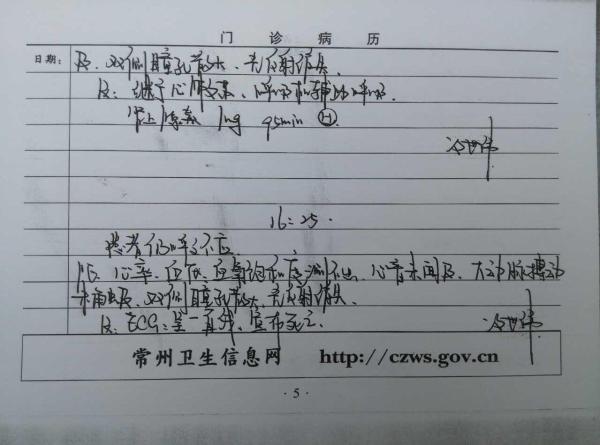 门诊病历
日期:
及、双侧瞳孔散大、光反射消失、
R: 继予心肺复苏、呼吸机辅助呼吸、
肾上腺素 1mg q5min
16:25.
患者仍呼之不应
PE: 心率、血压、血氧饱和度测不出、心音未闻及、大动脉搏动
未触及、双侧瞳孔散大、光反射消失、
R: ECG: 呈一直线、宣布死亡
常州卫生信息网 http://czws.gov.cn
· 5 ·